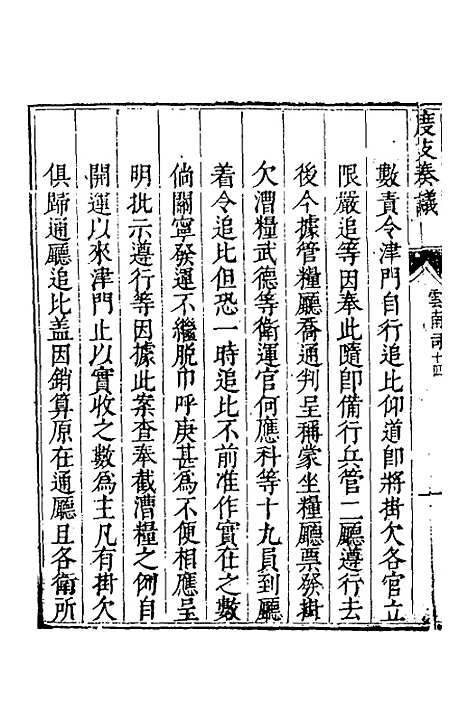 度支奏議
雲南司十四
數責令津門自行追比仰道卽將掛欠各官立
限嚴追等因奉此隨卽備行兵管二廳遵行去
後今據管糧廳喬通判呈稱蒙坐糧廳票發掛
欠漕糧武德等衛運官何應科等十九員到廳
着令追比但恐一時追比不前准作實在之數
倘關寧發運不繼脫巾呼庚甚爲不便相應呈
明批示遵行等因據此案查奉截漕糧之例自
開運以來津門止以實收之數爲主凡有掛欠
俱歸通廳追比盖因銷算原在通廳且各衛所